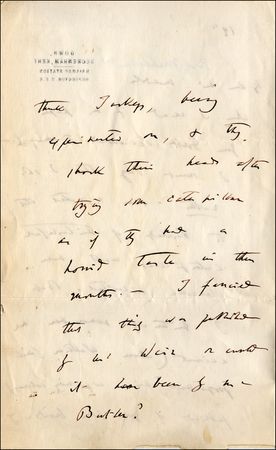 think Turkeys, being
experimented on, & they
shook their heads after
trying some caterpillars
as if they had a
horrid taste in their
mouths. — I fancied
this thing was published
by Mr Weir or could
it have been by Mr
Butler?